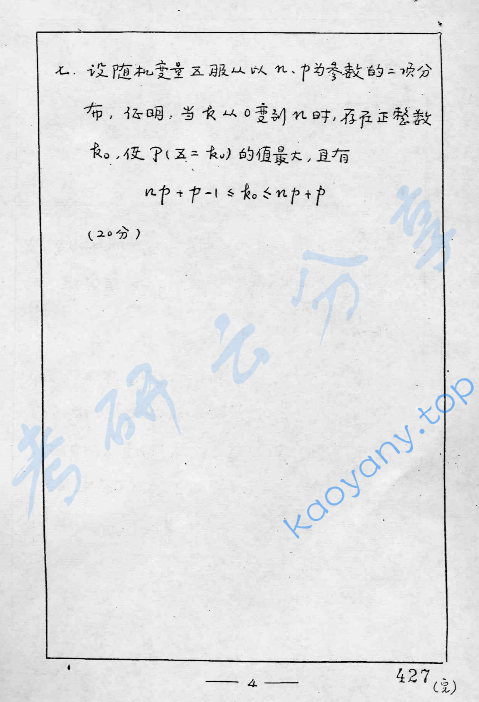 七. 设随机变量X服从以n、p为参数的二项分
布, 证明, 当k从0变到n时, 存在正整数
k₀, 使P(X=k₀)的值最大, 且有
np+p-1≤k₀≤np+p
(20分)
考研云分享
kaoyany.top
— 4 —
427
(完)